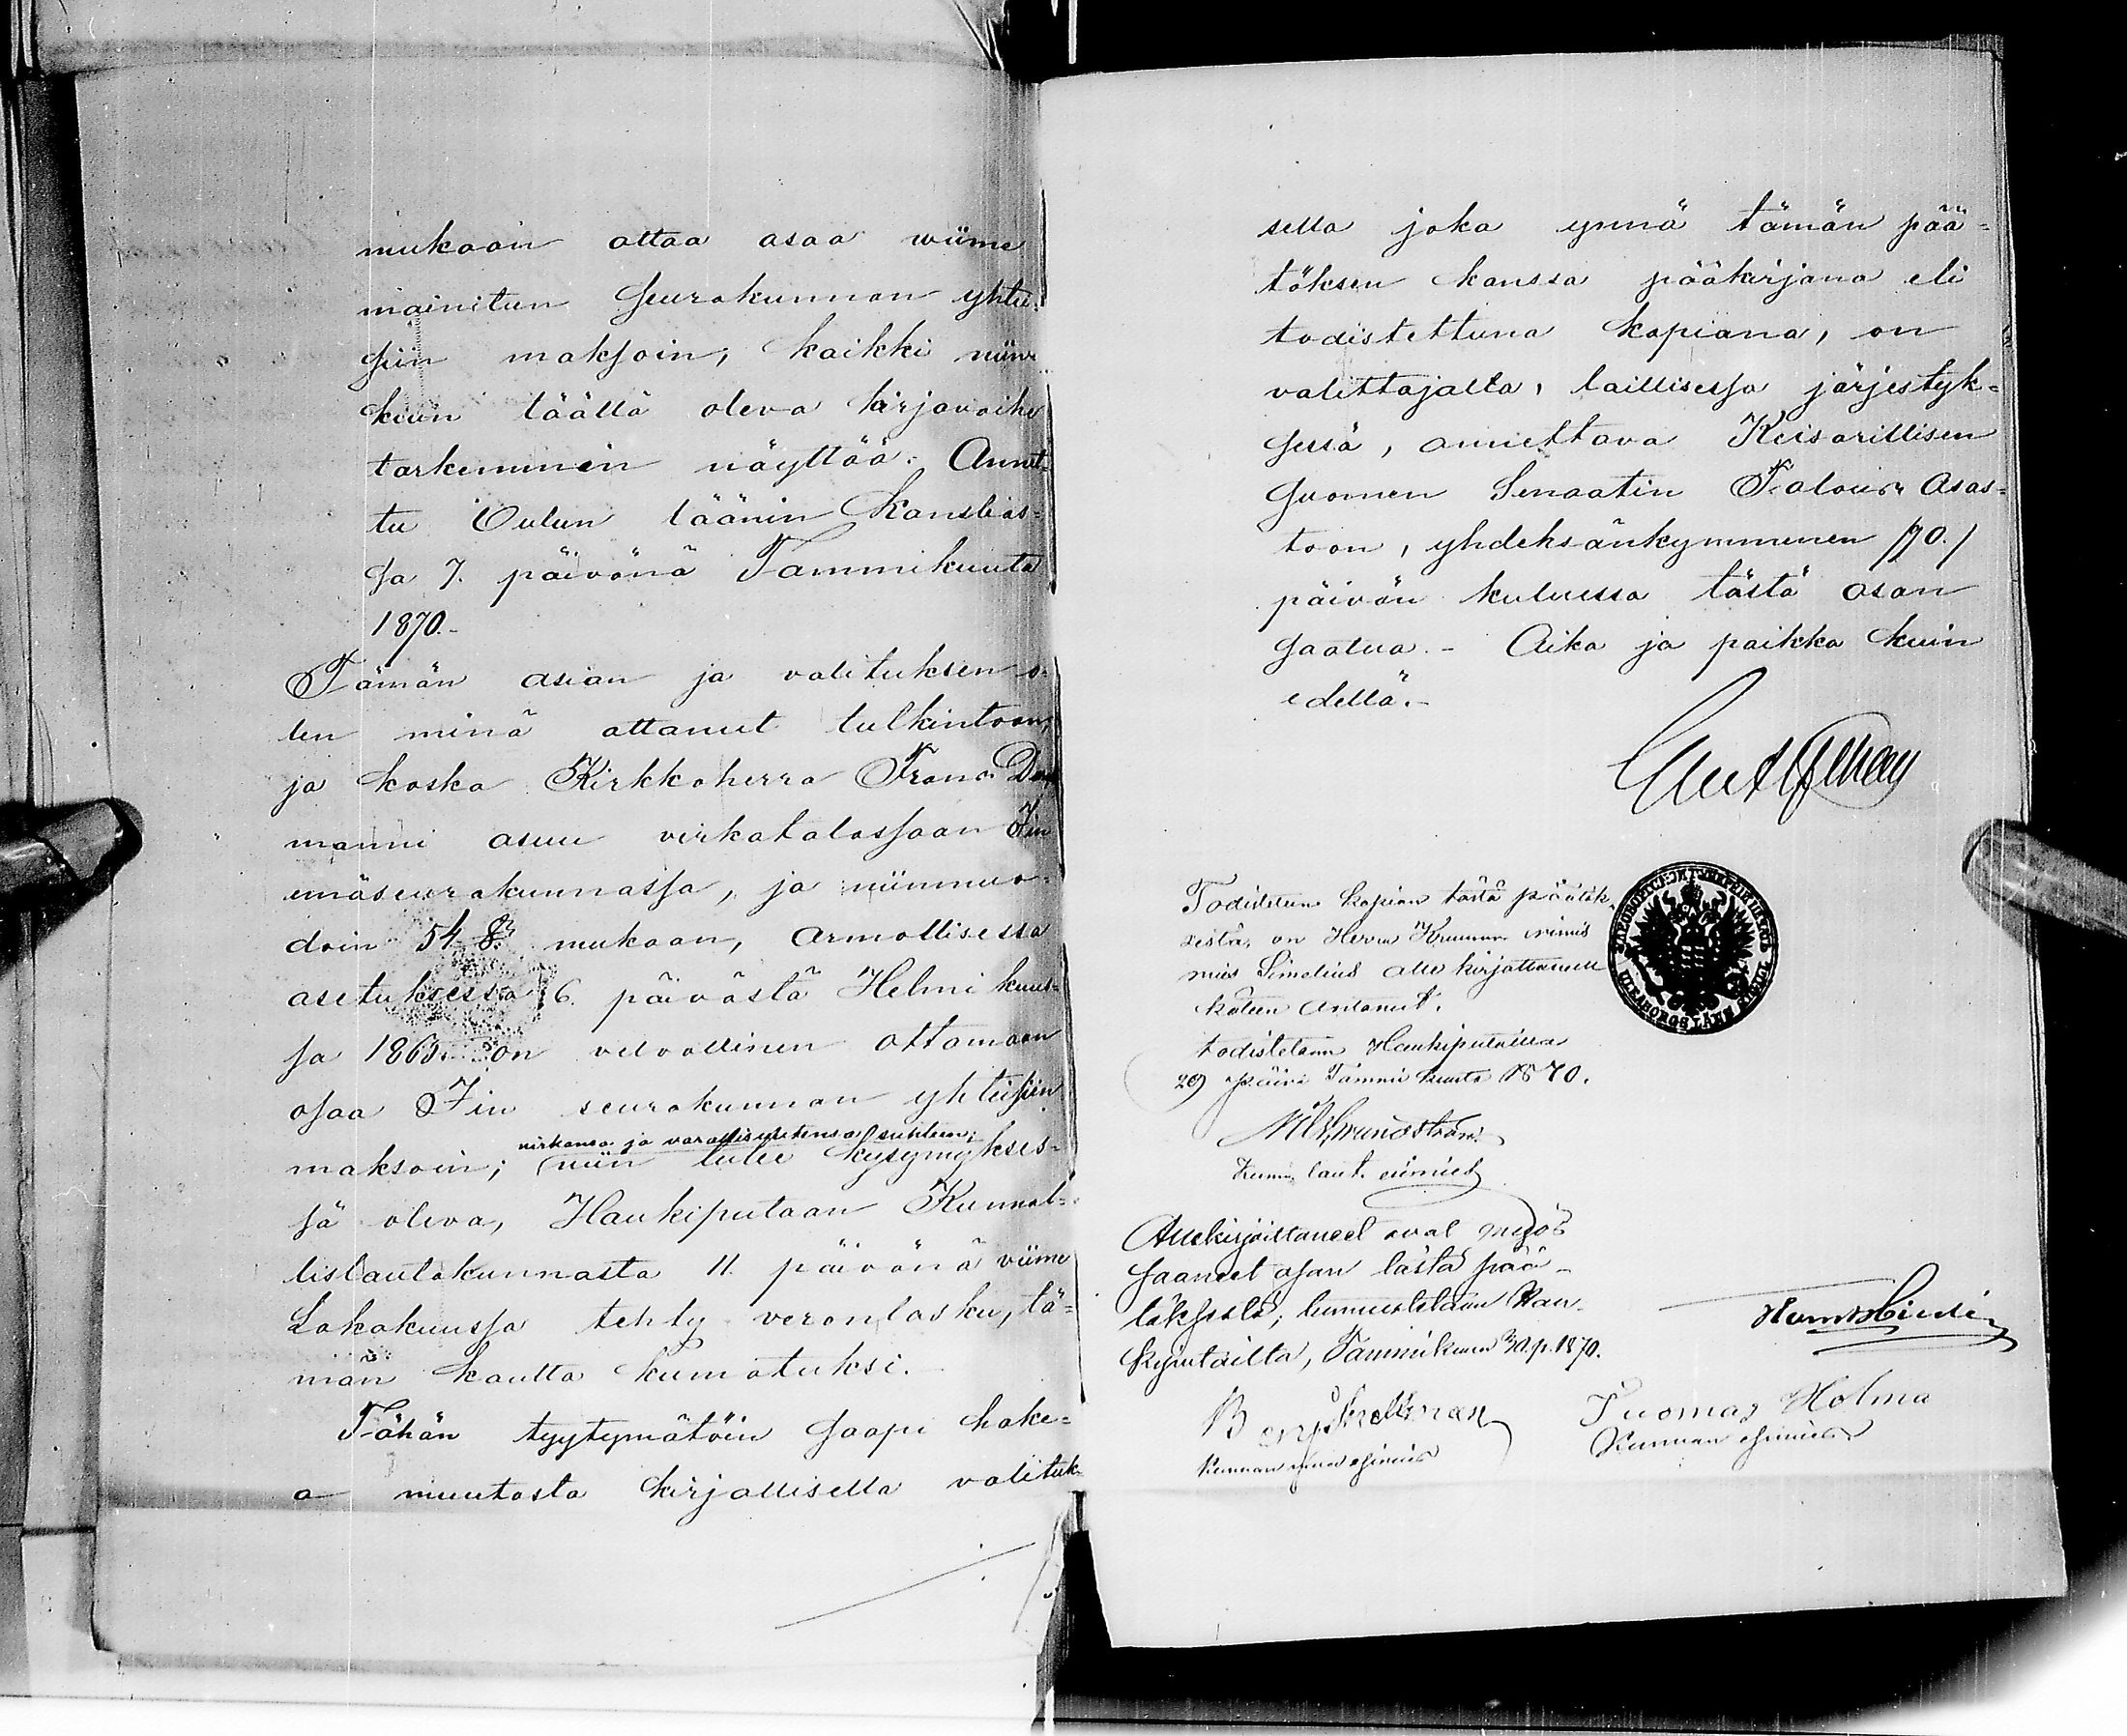 mukaan ottaa asaa wiime
mainitun seurakunnan yhtei-
siin maksoin, kaikki niin
kuin täällä oleva kirjavaihe
tarkemmin näyttää. Annet-
tu Oulun läänin Kanslias-
sa 7. päivänä Tammikuuta
1870.-
Tämän asian ja valituksen o-
len minä ottanut tulkintoon,
ja koska Kirkkoherra Frans Dan
manni asuu virkatalossaan Iin
emäseurakunnassa, ja niinmuo-
doin 54 §:n mukaan, Armollisessa
asetuksessa 6. päivästä Helmi kuus-
sa 1865. on velvollinen ottamaan
osaa Iin seurakunnan yhteisiin
virkansa ja varallisuutensa suhteen;
maksoin; niin tulee kysymykses-
sä oleva, Haukiputaan Kunnal-
lislautakunnasta 11. päivänä viime
Lokakuussa tehty veronlasku, tä-
män kautta kumotuksi.
Tähän tyytymätöin saapi hake-
a muutosta kirjallisella valituk-
sella joka ynnä tämän pää-
töksen kanssa pääkirjana eli
todistettuna kopiana, on
valittajalta, laillisessa järjestyk-
sessä, annettava Keisarillisen
Suomen Senaatin Talous Asas-
toon, yhdeksänkymmenen /90./
päivän kuluessa tästä osan
saatua.- Aika ja paikka kuin
edellä.-
Todistetun kopian tästä päätök-
sestä, on Herra Kruunun nimis
mies Simelius allekirjottaneen
käteen antanut.
todistetaan Haukiputailla
29 päivä Tammi kuuta 1870.
Kunn. laut. esimies
Allekirjoittaneet ovat myös
saaneet osan tästä pää-
töksestä; tunnustetaan Hau-
kiputailla, Tammikuun 30.p. 1870.
Tuomas Holma
Kunnan esimies
Kunnan esimies
ULEÅBORGS LÄNS